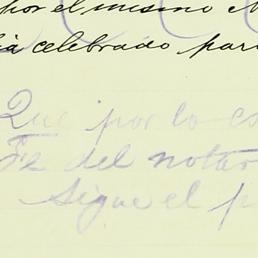 por el mismo N
ia celebrado para
Que por lo co
Fe del notar
Sigue el p